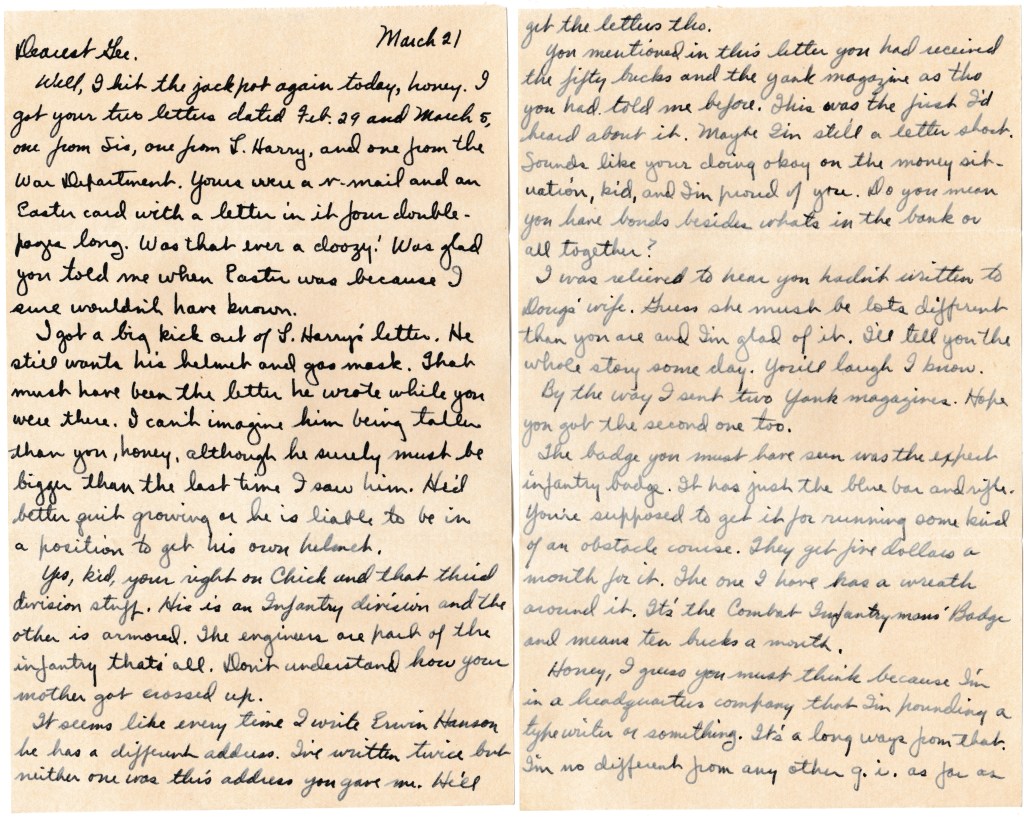 March 21
Dearest Gee.
Well, I hit the jackpot again today, honey. I
got your two letters dated Feb. 29 and March 5,
one from Sis, one from L. Harry, and one from the
War Department. Yours were a v-mail and an
Easter card with a letter in it four double-
pages long. Was that ever a doozy! Was glad
you told me when Easter was because I
sure wouldn't have known.
I got a big kick out of L. Harry's letter. He
still wants his helmet and gas mask. That
must have been the letter he wrote while you
were there. I can't imagine him being taller
than you, honey, although he surely must be
bigger than the last time I saw him. He'd
better quit growing or he is liable to be in
a position to get his own helmet.
Yes, kid, your right on Chick and that third
division stuff. His is an Infantry division and the
other is armored. The engineers are part of the
infantry that's all. Don't understand how your
mother got crossed up.
It seems like every time I write Erwin Hanson
he has a different address. I've written twice but
neither one was this address you gave me. He'll
get the letters tho.
You mentioned in this letter you had received
the fifty bucks and the yank magazine as tho
you had told me before. This was the first I'd
heard about it. Maybe I'm still a letter short.
Sounds like your doing okay on the money sit-
uation, kid, and I'm proud of you. Do you mean
you have bonds besides what's in the bank or
all together?
I was relieved to hear you hadn't written to
Doug's wife. Guess she must be lots different
than you are and I'm glad of it. I'll tell you the
whole story some day. You'll laugh I know.
By the way I sent two Yank magazines. Hope
you got the second one too.
The badge you must have seen was the expert
infantry badge. It has just the blue bar and rifle.
You're supposed to get it for running some kind
of an obstacle course. They get five dollars a
month for it. The one I have has a wreath
around it. It's the Combat Infantrymans' Badge
and means ten bucks a month.
Honey, I guess you must think because I'm
in a headquarters company that I'm pounding a
typewriter or something. It's a long ways from that.
I'm no different from any other g. i. as far as